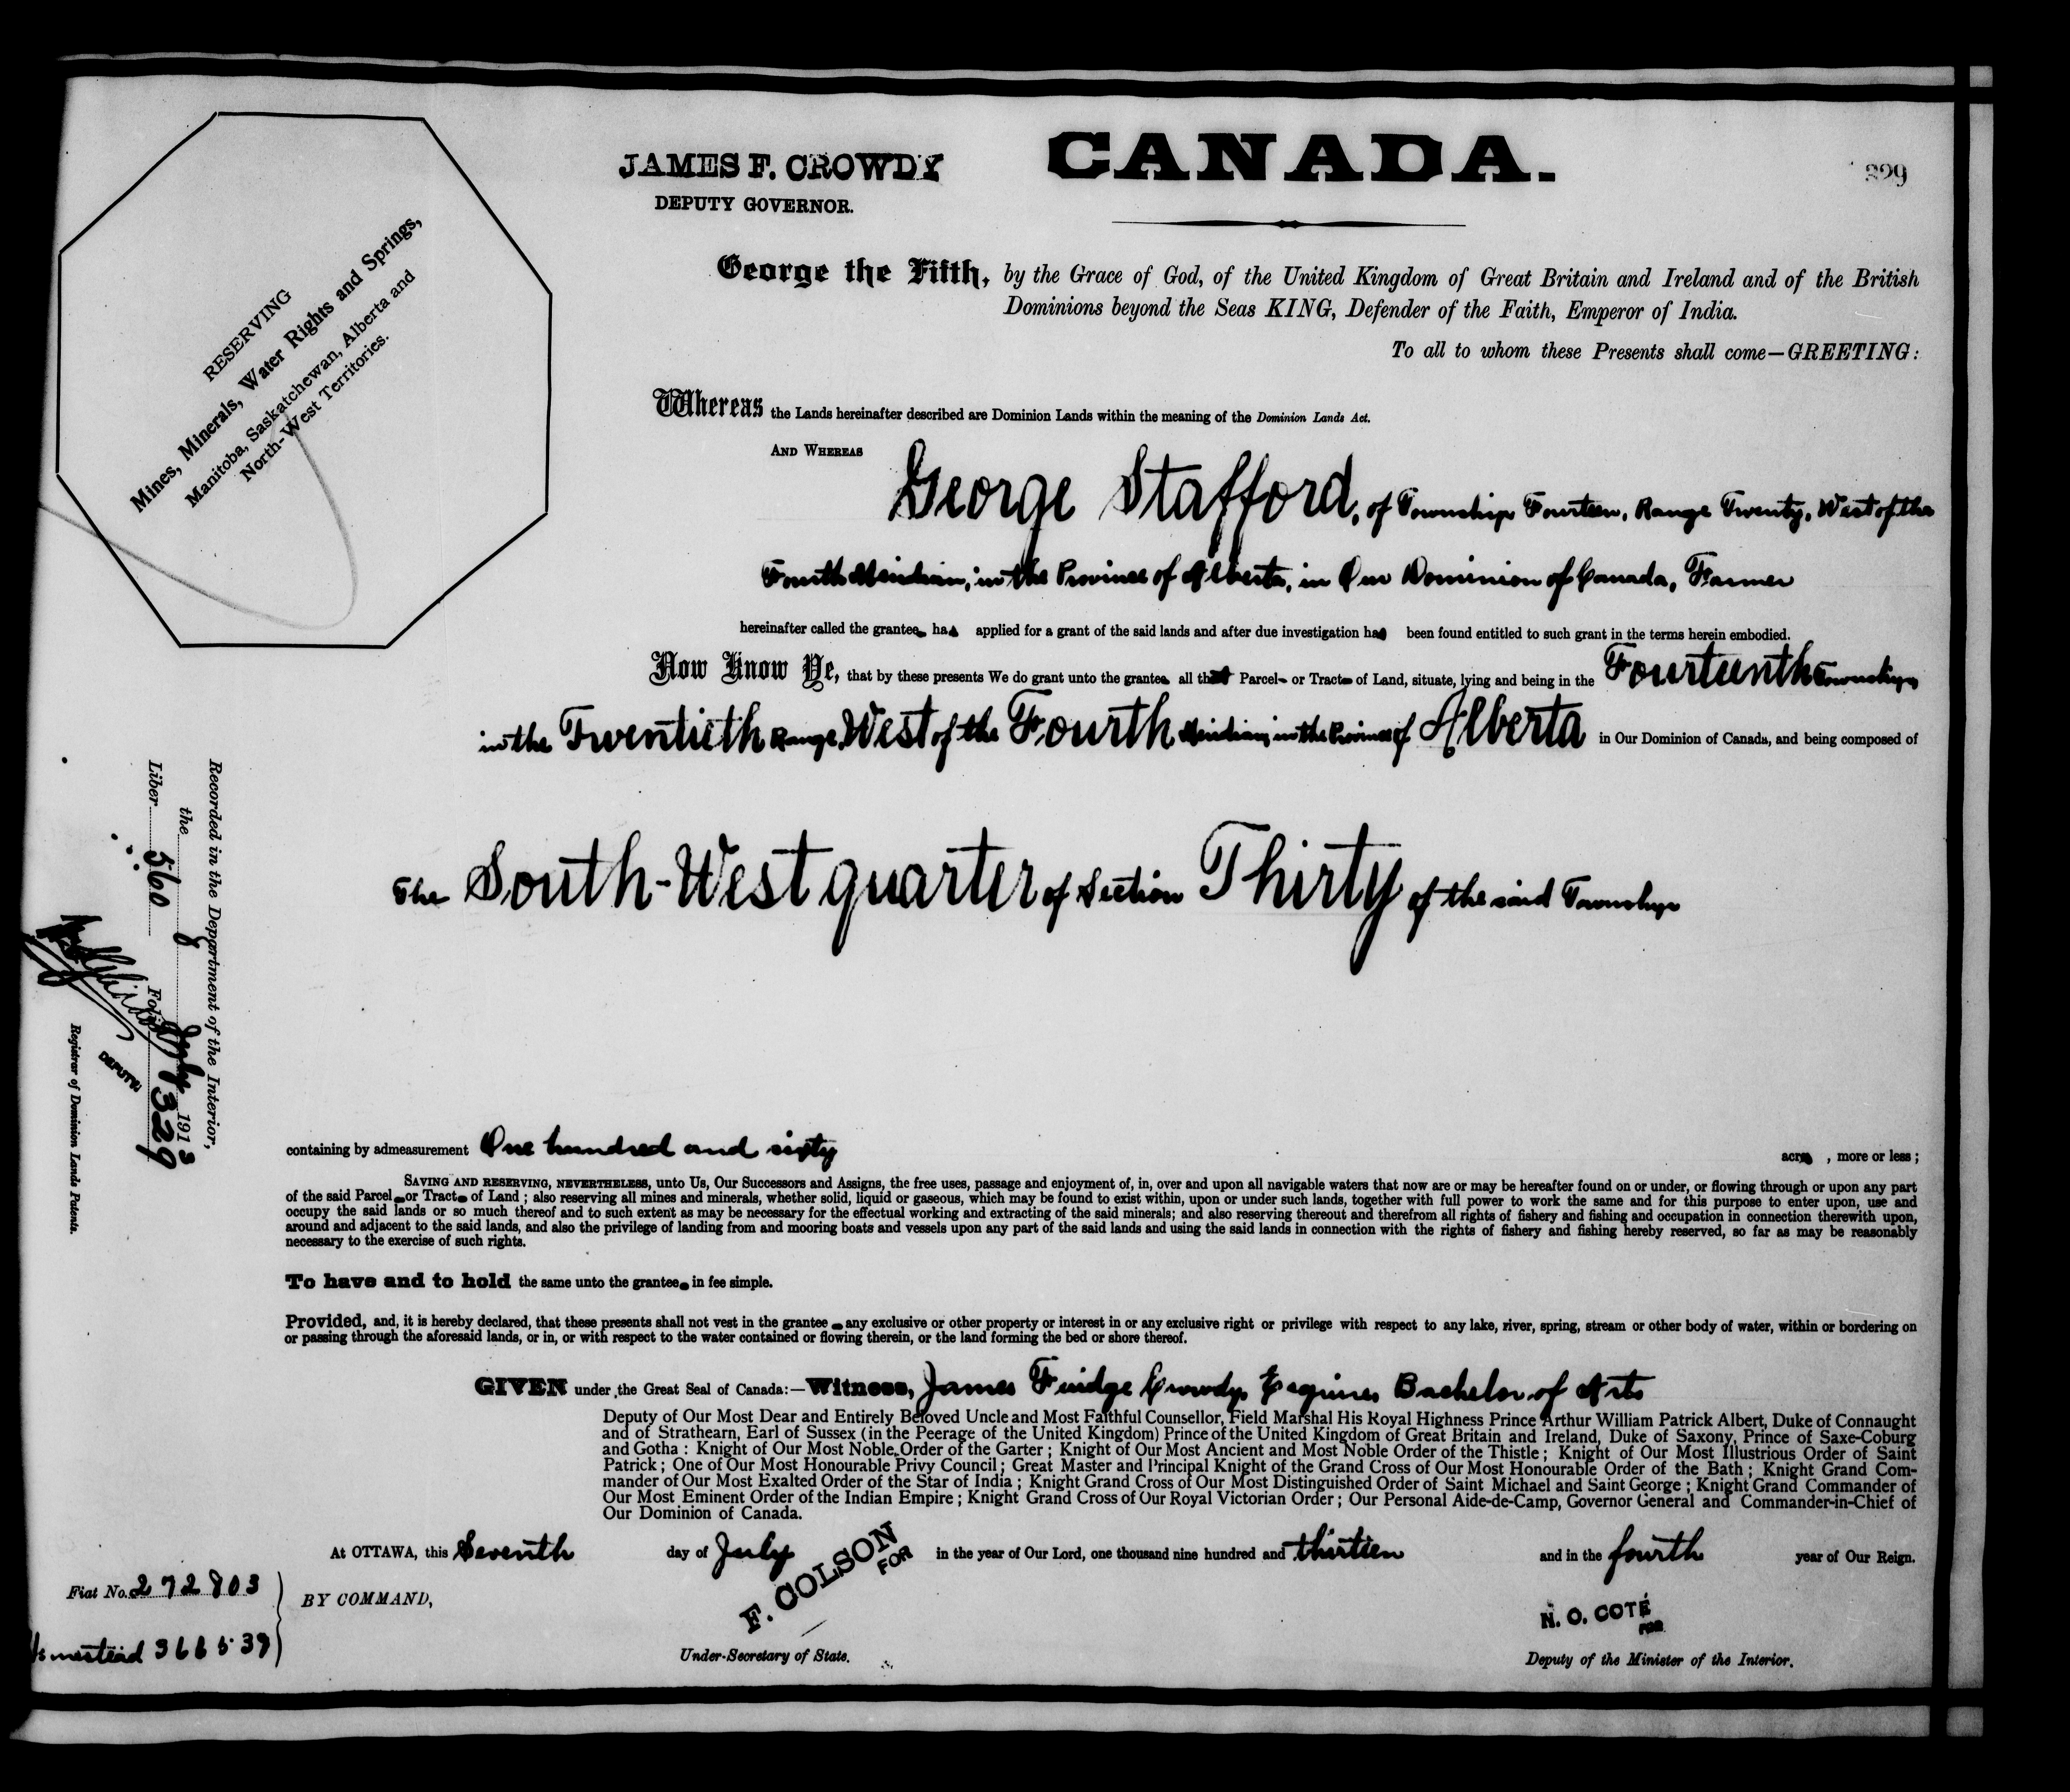 JAMES F. CROWDY
DEPUTY GOVERNOR.
CANADA.
329
RESERVING
Mines, Minerals, Water Rights and Springs,
Manitoba, Saskatchewan, Alberta and
North-West Territories.
George the Fifth, by the Grace of God, of the United Kingdom of Great Britain and Ireland and of the British
Dominions beyond the Seas KING, Defender of the Faith, Emperor of India.
To all to whom these Presents shall come—GREETING:
Whereas the Lands hereinafter described are Dominion Lands within the meaning of the Dominion Lands Act.
AND WHEREAS
George Stafford, of Township Fourteen, Range Twenty, West of the
Fourth Meridian, in the Province of Alberta, in Our Dominion of Canada, Farmer
hereinafter called the grantee, has applied for a grant of the said lands and after due investigation has been found entitled to such grant in the terms herein embodied.
Now Know Ye, that by these presents We do grant unto the grantee all that Parcel or Tract of Land, situate, lying and being in the Fourteenth Township
in the Twentieth Range, West of the Fourth Meridian, in the Province of Alberta in Our Dominion of Canada, and being composed of
The South-West quarter of Section Thirty of the said Township
containing by admeasurement One hundred and sixty acres, more or less;
SAVING AND RESERVING, NEVERTHELESS, unto Us, Our Successors and Assigns, the free uses, passage and enjoyment of, in, over and upon all navigable waters that now are or may be hereafter found on or under, or flowing through or upon any part
of the said Parcel or Tract of Land; also reserving all mines and minerals, whether solid, liquid or gaseous, which may be found to exist within, upon or under such lands, together with full power to work the same and for this purpose to enter upon, use and
occupy the said lands or so much thereof and to such extent as may be necessary for the effectual working and extracting of the said minerals; and also reserving thereout and therefrom all rights of fishery and fishing and occupation in connection therewith upon,
around and adjacent to the said lands, and also the privilege of landing from and mooring boats and vessels upon any part of the said lands and using the said lands in connection with the rights of fishery and fishing hereby reserved, so far as may be reasonably
necessary to the exercise of such rights.
To have and to hold the same unto the grantee in fee simple.
Provided, and, it is hereby declared, that these presents shall not vest in the grantee any exclusive or other property or interest in or any exclusive right or privilege with respect to any lake, river, spring, stream or other body of water, within or bordering on
or passing through the aforesaid lands, or in, or with respect to the water contained or flowing therein, or the land forming the bed or shore thereof.
GIVEN under the Great Seal of Canada:—Witness, James Fuidge Crowdy, Esquire, Bachelor of Arts
Deputy of Our Most Dear and Entirely Beloved Uncle and Most Faithful Counsellor, Field Marshal His Royal Highness Prince Arthur William Patrick Albert, Duke of Connaught
and of Strathearn, Earl of Sussex (in the Peerage of the United Kingdom) Prince of the United Kingdom of Great Britain and Ireland, Duke of Saxony, Prince of Saxe-Coburg
and Gotha: Knight of Our Most Noble Order of the Garter; Knight of Our Most Ancient and Most Noble Order of the Thistle; Knight of Our Most Illustrious Order of Saint
Patrick; One of Our Most Honourable Privy Council; Great Master and Principal Knight of the Grand Cross of Our Most Honourable Order of the Bath; Knight Grand Com-
mander of Our Most Exalted Order of the Star of India; Knight Grand Cross of Our Most Distinguished Order of Saint Michael and Saint George; Knight Grand Commander of
Our Most Eminent Order of the Indian Empire; Knight Grand Cross of Our Royal Victorian Order; Our Personal Aide-de-Camp, Governor General and Commander-in-Chief of
Our Dominion of Canada.
At OTTAWA, this Seventh day of July in the year of Our Lord, one thousand nine hundred and thirteen and in the fourth year of Our Reign.
BY COMMAND,
F. COLSON
FOR
Under-Secretary of State.
N. O. COTÉ
FOR
Deputy of the Minister of the Interior.
Fiat No. 272803
Homestead 366539
Recorded in the Department of the Interior,
the 8 July 1913
Liber 560 Folio 329
DEPUTY
Registrar of Dominion Lands Patents.